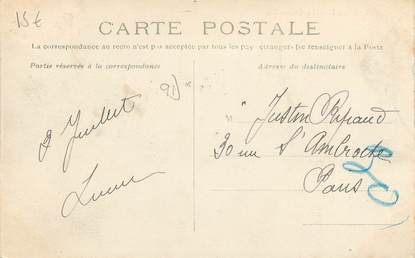 15€
CARTE POSTALE
La correspondance au recto n'est pas acceptée par tous les pays étrangers (se renseigner à la Poste
Partie réservée à la correspondance
Adresse du destinataire
91
2 Juillet
Justin
30 rue St Ambroise
Paris